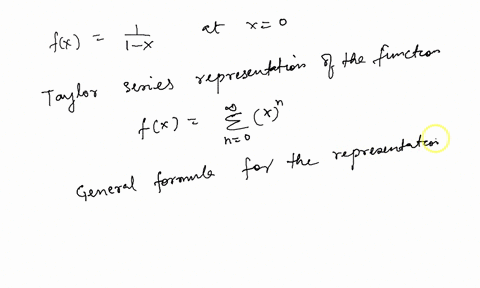 f(x) = 1/(1-x) at x=0
Taylor series representation of the function
f(x) = ∑_{n=0}^{∞} (x)^n
General formula for the representation